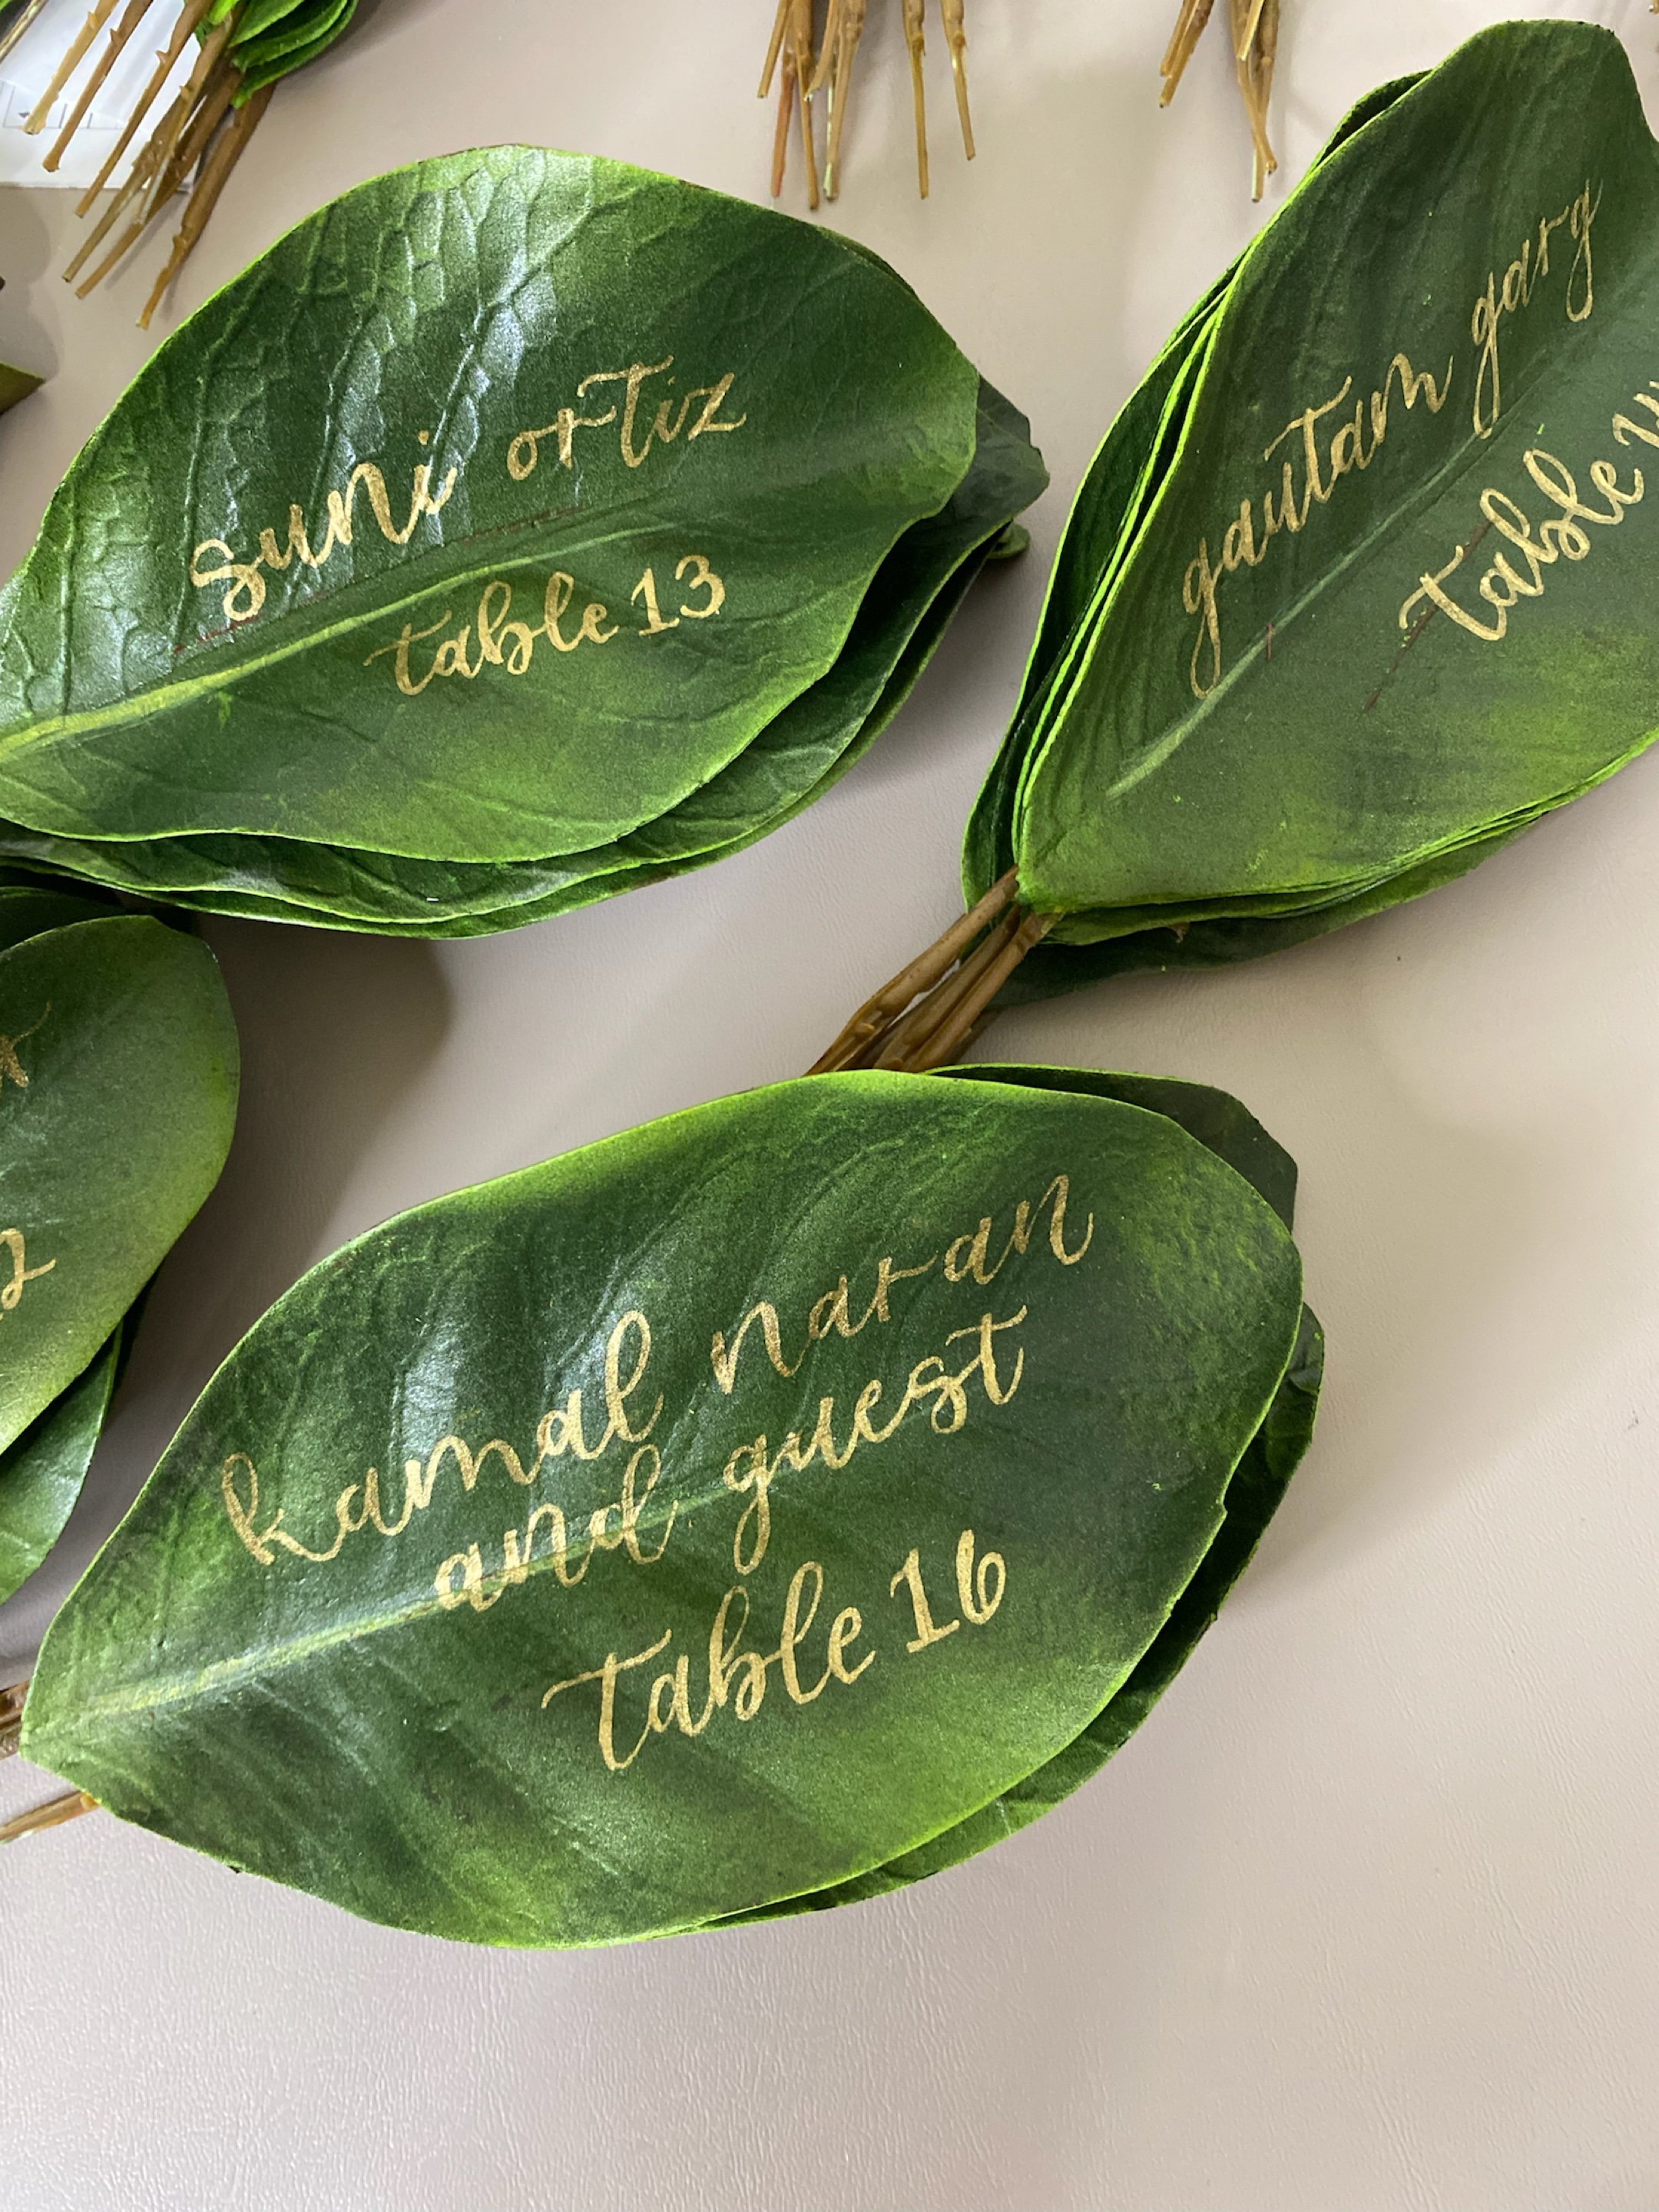 suni ortiz
table 13
gautam garg
table
kamal naran
and guest
table 16